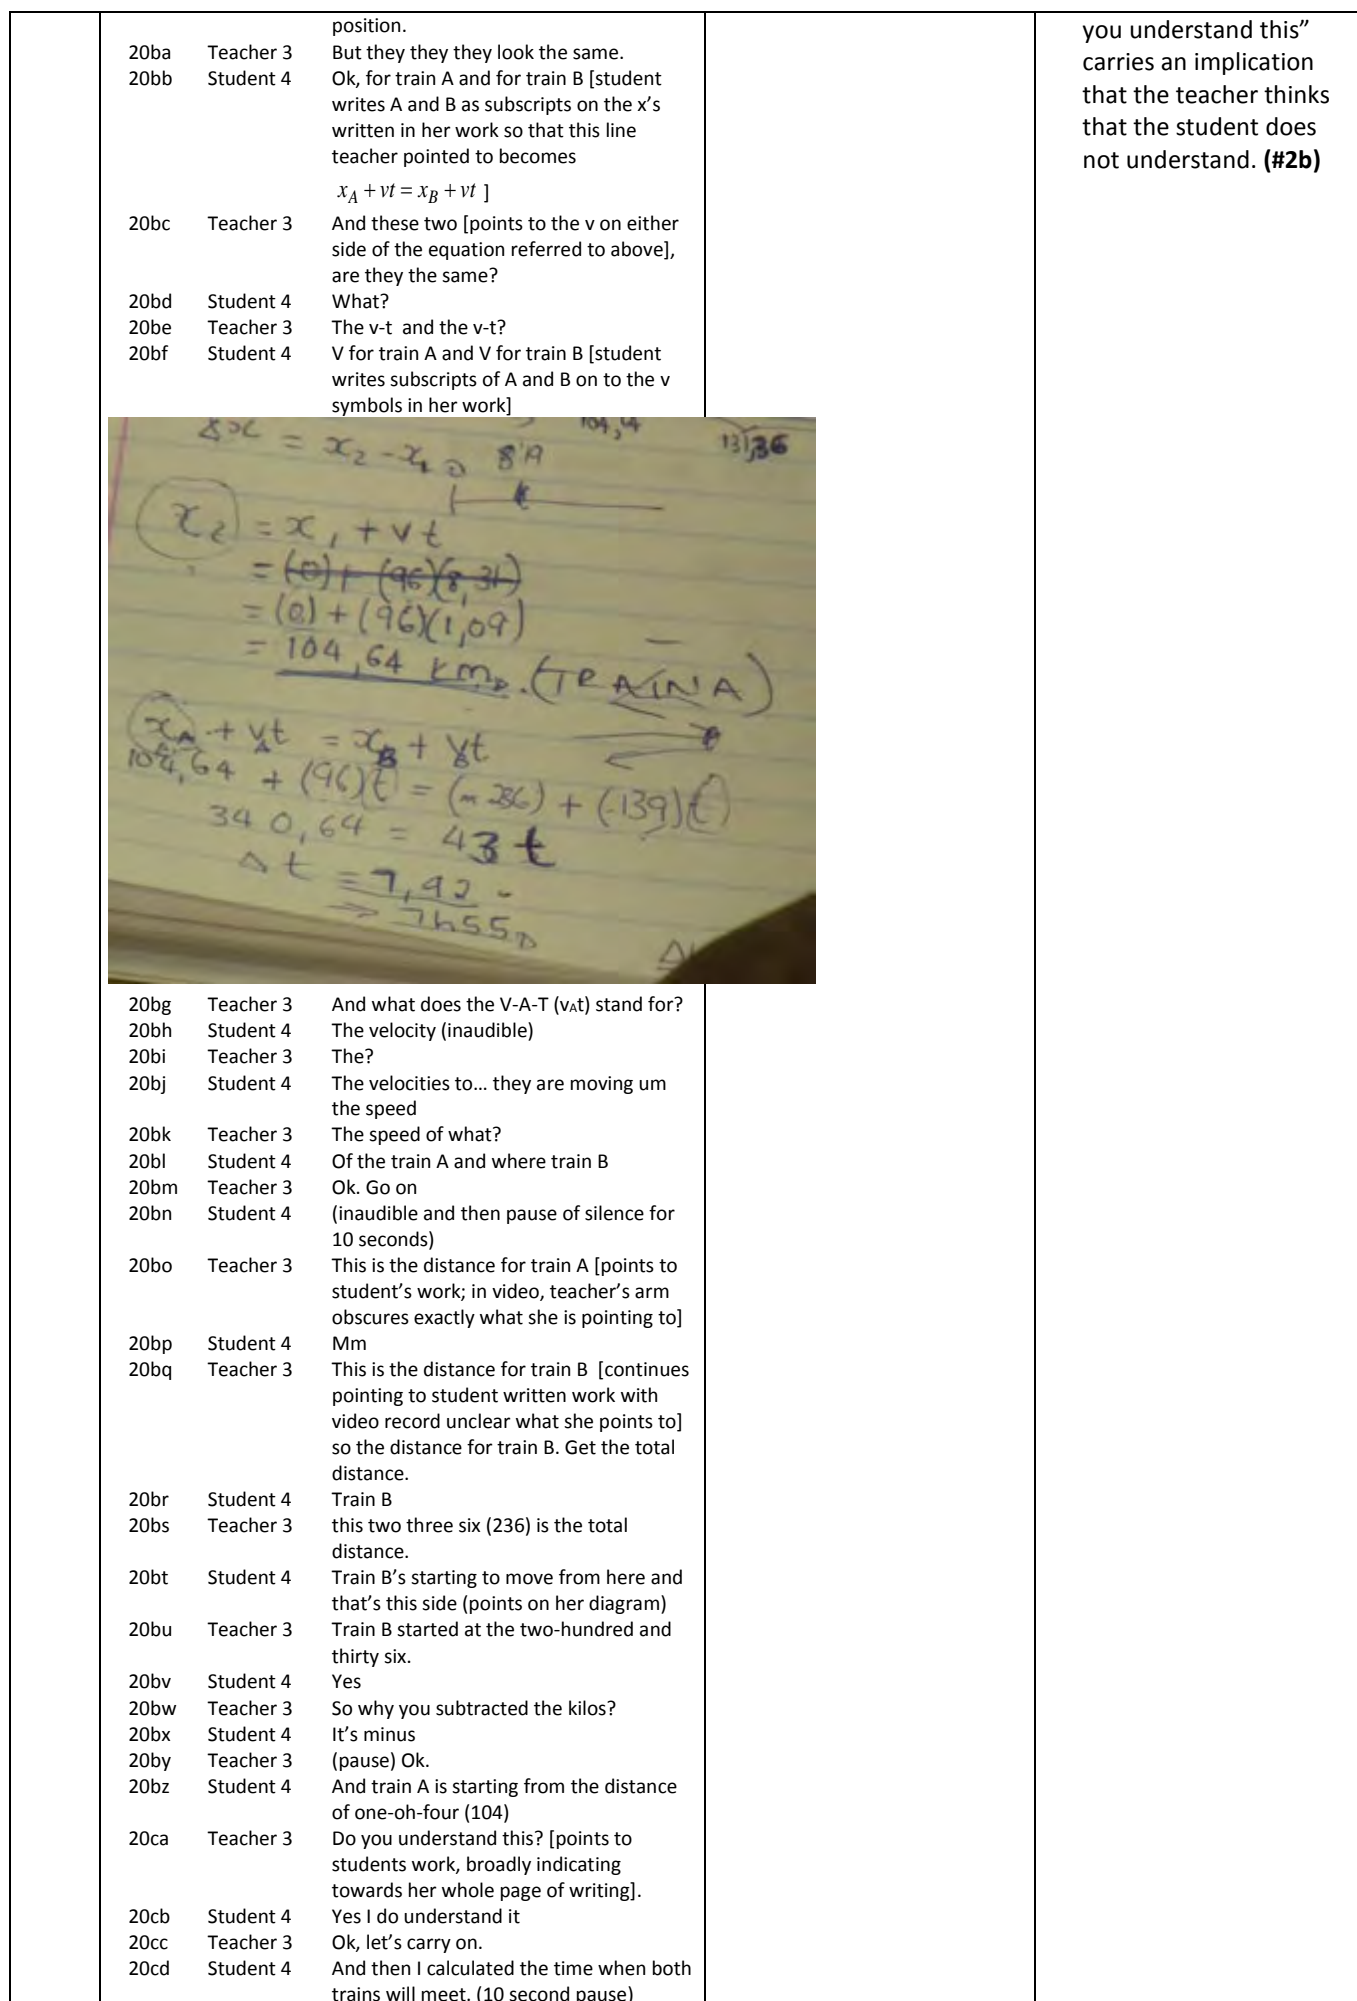 position.
20ba Teacher 3 But they they they look the same.
20bb Student 4 Ok, for train A and for train B [student
writes A and B as subscripts on the x's
written in her work so that this line
teacher pointed to becomes
x_A + vt = x_B + vt ]
20bc Teacher 3 And these two [points to the v on either
side of the equation referred to above],
are they the same?
20bd Student 4 What?
20be Teacher 3 The v-t and the v-t?
20bf Student 4 V for train A and V for train B [student
writes subscripts of A and B on to the v
symbols in her work]
= x₂ - x₁
104,64
131,36
x₂ = x₁ + vt
= (0) + (96)(8,31)
= (0) + (96)(1,09)
= 104,64 km. (TRAIN A)
x_A + v_A t = x_B + v_B t
104,64 + (96)t = (-236) + (-139)t
340,64 = 43t
Δt = 7,92
7h55
20bg Teacher 3 And what does the V-A-T (vAt) stand for?
20bh Student 4 The velocity (inaudible)
20bi Teacher 3 The?
20bj Student 4 The velocities to… they are moving um
the speed
20bk Teacher 3 The speed of what?
20bl Student 4 Of the train A and where train B
20bm Teacher 3 Ok. Go on
20bn Student 4 (inaudible and then pause of silence for
10 seconds)
20bo Teacher 3 This is the distance for train A [points to
student's work; in video, teacher's arm
obscures exactly what she is pointing to]
20bp Student 4 Mm
20bq Teacher 3 This is the distance for train B [continues
pointing to student written work with
video record unclear what she points to]
so the distance for train B. Get the total
distance.
20br Student 4 Train B
20bs Teacher 3 this two three six (236) is the total
distance.
20bt Student 4 Train B's starting to move from here and
that's this side (points on her diagram)
20bu Teacher 3 Train B started at the two-hundred and
thirty six.
20bv Student 4 Yes
20bw Teacher 3 So why you subtracted the kilos?
20bx Student 4 It's minus
20by Teacher 3 (pause) Ok.
20bz Student 4 And train A is starting from the distance
of one-oh-four (104)
20ca Teacher 3 Do you understand this? [points to
students work, broadly indicating
towards her whole page of writing].
20cb Student 4 Yes I do understand it
20cc Teacher 3 Ok, let's carry on.
20cd Student 4 And then I calculated the time when both
trains will meet. (10 second pause)
you understand this"
carries an implication
that the teacher thinks
that the student does
not understand. (#2b)